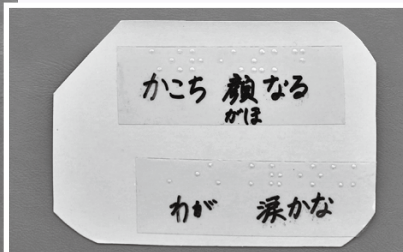 かこち 顔なる
がほ
わが 涙かな